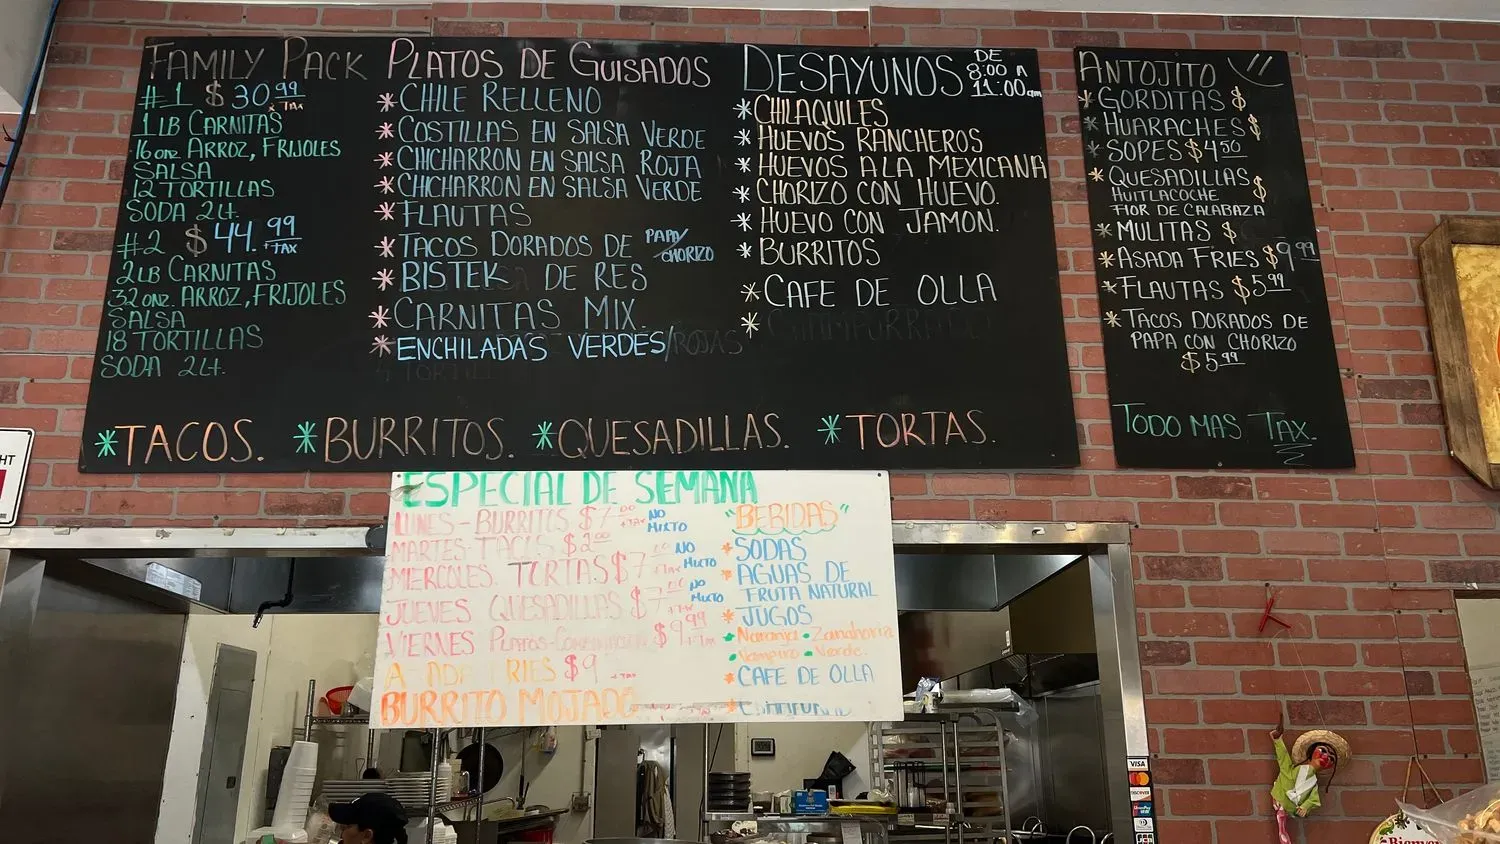 FAMILY PACK
#1 $30.99 + TAX
1 LB CARNITAS
16 onz ARROZ, FRIJOLES
SALSA
12 TORTILLAS
SODA 2Lt.
#2 $44.99 + TAX
2 LB CARNITAS
32 onz. ARROZ, FRIJOLES
SALSA
18 TORTILLAS
SODA 2Lt.
PLATOS DE GUISADOS
* CHILE RELLENO
* COSTILLAS EN SALSA VERDE
* CHICHARRON EN SALSA ROJA
* CHICHARRON EN SALSA VERDE
* FLAUTAS
* TACOS DORADOS DE PAPA/CHORIZO
* BISTEK DE RES
* CARNITAS MIX
* ENCHILADAS VERDES/ROJAS
DESAYUNOS DE 8:00 A 11:00 am
* CHILAQUILES
* HUEVOS RANCHEROS
* HUEVOS A LA MEXICANA
* CHORIZO CON HUEVO.
* HUEVO CON JAMON.
* BURRITOS
* CAFE DE OLLA
* CHAMPURRADO
* TACOS. * BURRITOS. * QUESADILLAS. * TORTAS.
ANTOJITO
* GORDITAS $
* HUARACHES $
* SOPES $4.50
* QUESADILLAS $
HUITLACOCHE
FLOR DE CALABAZA
* MULITAS $
* ASADA FRIES $9.99
* FLAUTAS $5.99
* TACOS DORADOS DE
PAPA CON CHORIZO
$5.99
TODO MAS TAX.
ESPECIAL DE SEMANA
LUNES - BURRITOS $7.00 + TAX NO MIXTO
MARTES - TACOS $2.00
MIERCOLES. TORTAS $7.00 + TAX NO MIXTO
JUEVES QUESADILLAS $7.00 + TAX NO MIXTO
VIERNES PLATOS-COMBINACION $9.99 + TAX
ASADA FRIES $9
BURRITO MOJADO
"BEBIDAS"
* SODAS
* AGUAS DE
FRUTA NATURAL
* JUGOS
• Naranja • Zanahoria
• Vampiro • Verde.
* CAFE DE OLLA
VISA
MasterCard
DISCOVER